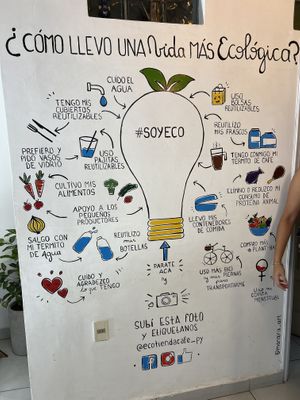 ¿CÓMO LLEVO UNA Vida MÁS Ecológica?
CUIDO EL
AGUA
USO
BOLSAS
REUTILIZABLES
TENGO MIS
CUBIERTOS
REUTILIZABLES
#SOYECO
REUTILIZO
MIS FRASCOS
PREFIERO y
PIDO VASOS
DE VIDRIO
USO
PAJITAS
REUTILIZABLES
TENGO CONMIGO MI
TERMITO DE CAFÉ
CULTIVO MIS
ALIMENTOS
ELIMINO O REDUZCO MI
CONSUMO DE
PROTEÍNA ANIMAL
APOYO A LOS
PEQUEÑOS
PRODUCTORES
LLEVO MIS
CONTENEDORES
DE COMIDA
SALGO CON
MI TERMITO
DE Agua
REUTILIZO
MIS
BOTELLAS
COMPRO MÁS
A PLANTITA
CUIDO Y
AGRADEZCO
Lo que TENGO
PARATE
ACÁ
y
USO MÁS BICI
y MIS PIERNAS
PARA
TRANSPORTARME
USO MI
COPITA
MENSTRUAL
SUBÍ ESTA FOTO
y ETIQUETANOS
@ecotiendacafe_py
f